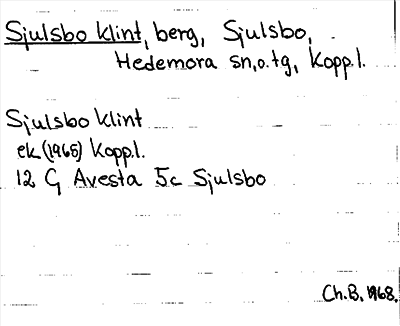 Sjulsbo klint, berg, Sjulsbo,
Hedemora sn, o. tg, Kopp.l.
Sjulsbo klint
ek (1965) Kopp.l.
12 G Avesta 5c Sjulsbo
Ch.B. 1968.